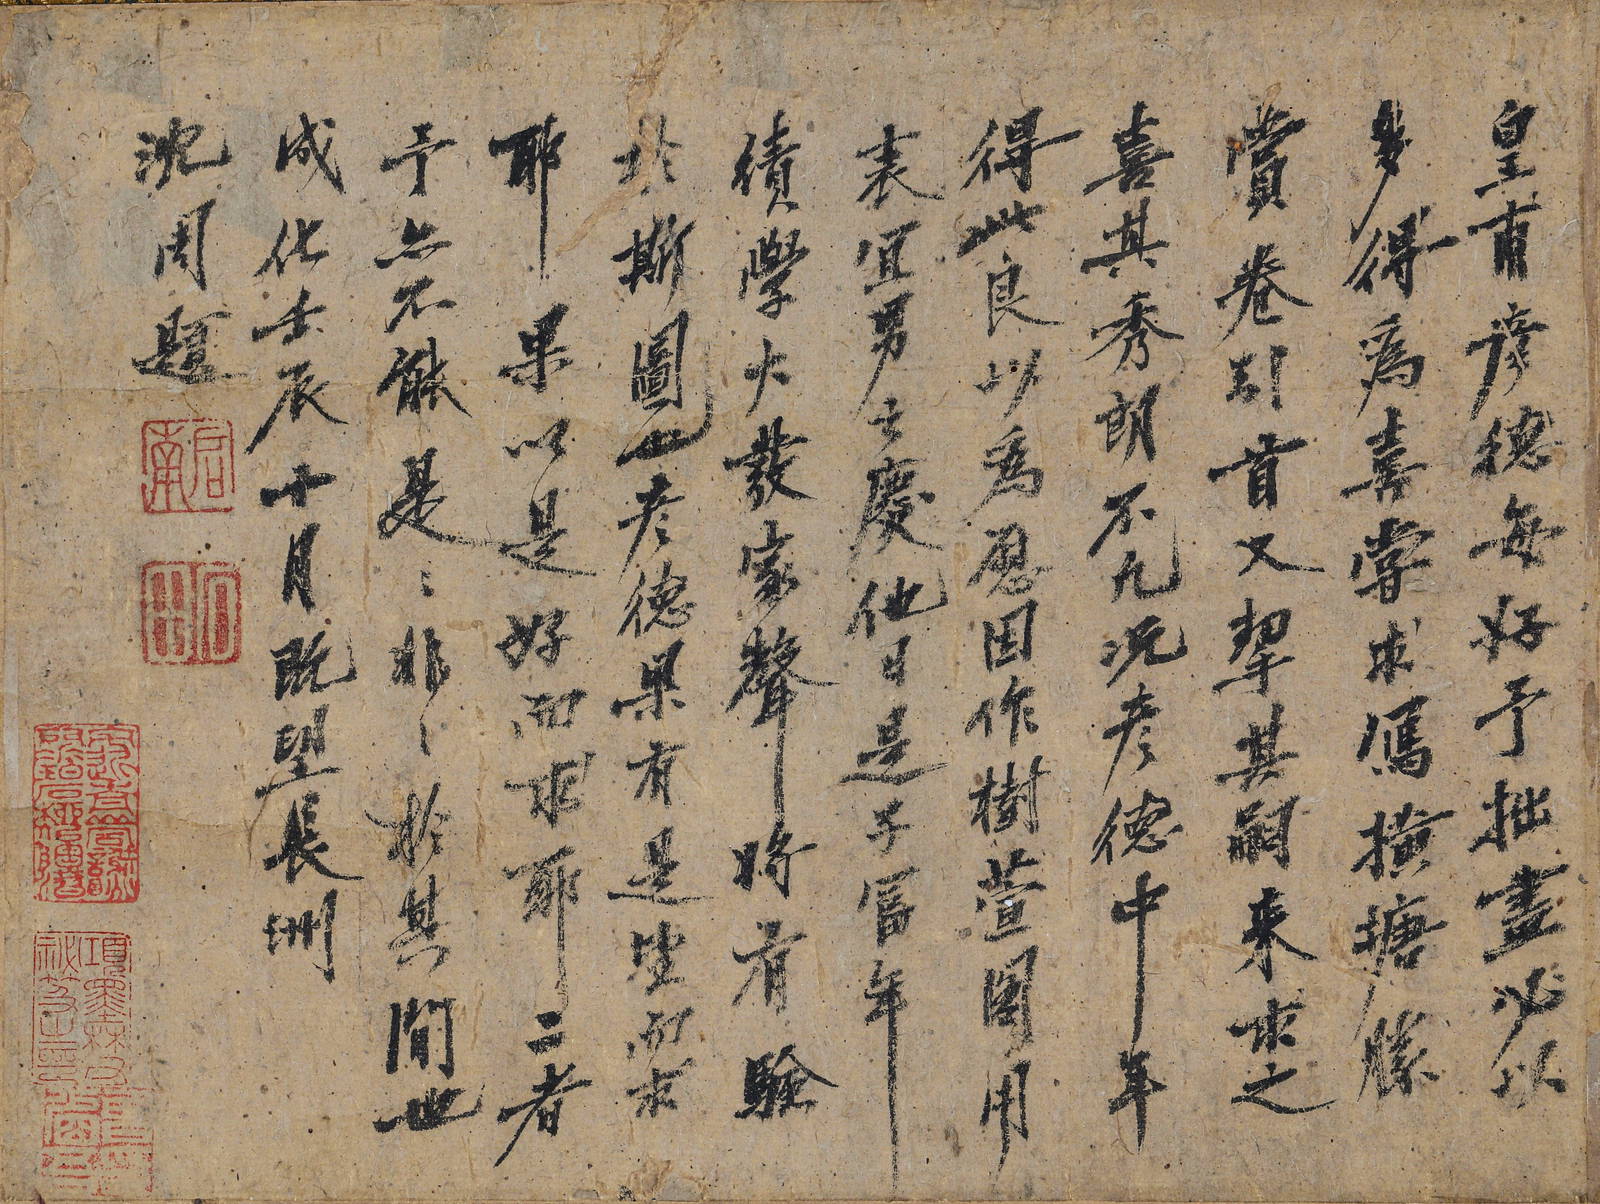 皇甫彦德每好予拙畫必以
多得為喜嘗求寫橫塘勝
賞卷引首又挈其嗣來求之
喜其秀朗不凡況彦德中年
得此良以為慰因作樹萱圖用
表宜男之慶他日是子富年
績學大發家聲將有驗
於斯圖也彦德果有是望而求
耶果以是好而求耶二者
予亦不能是〻非〻於其間也
成化壬辰十月既望長洲
沈周題
啟南